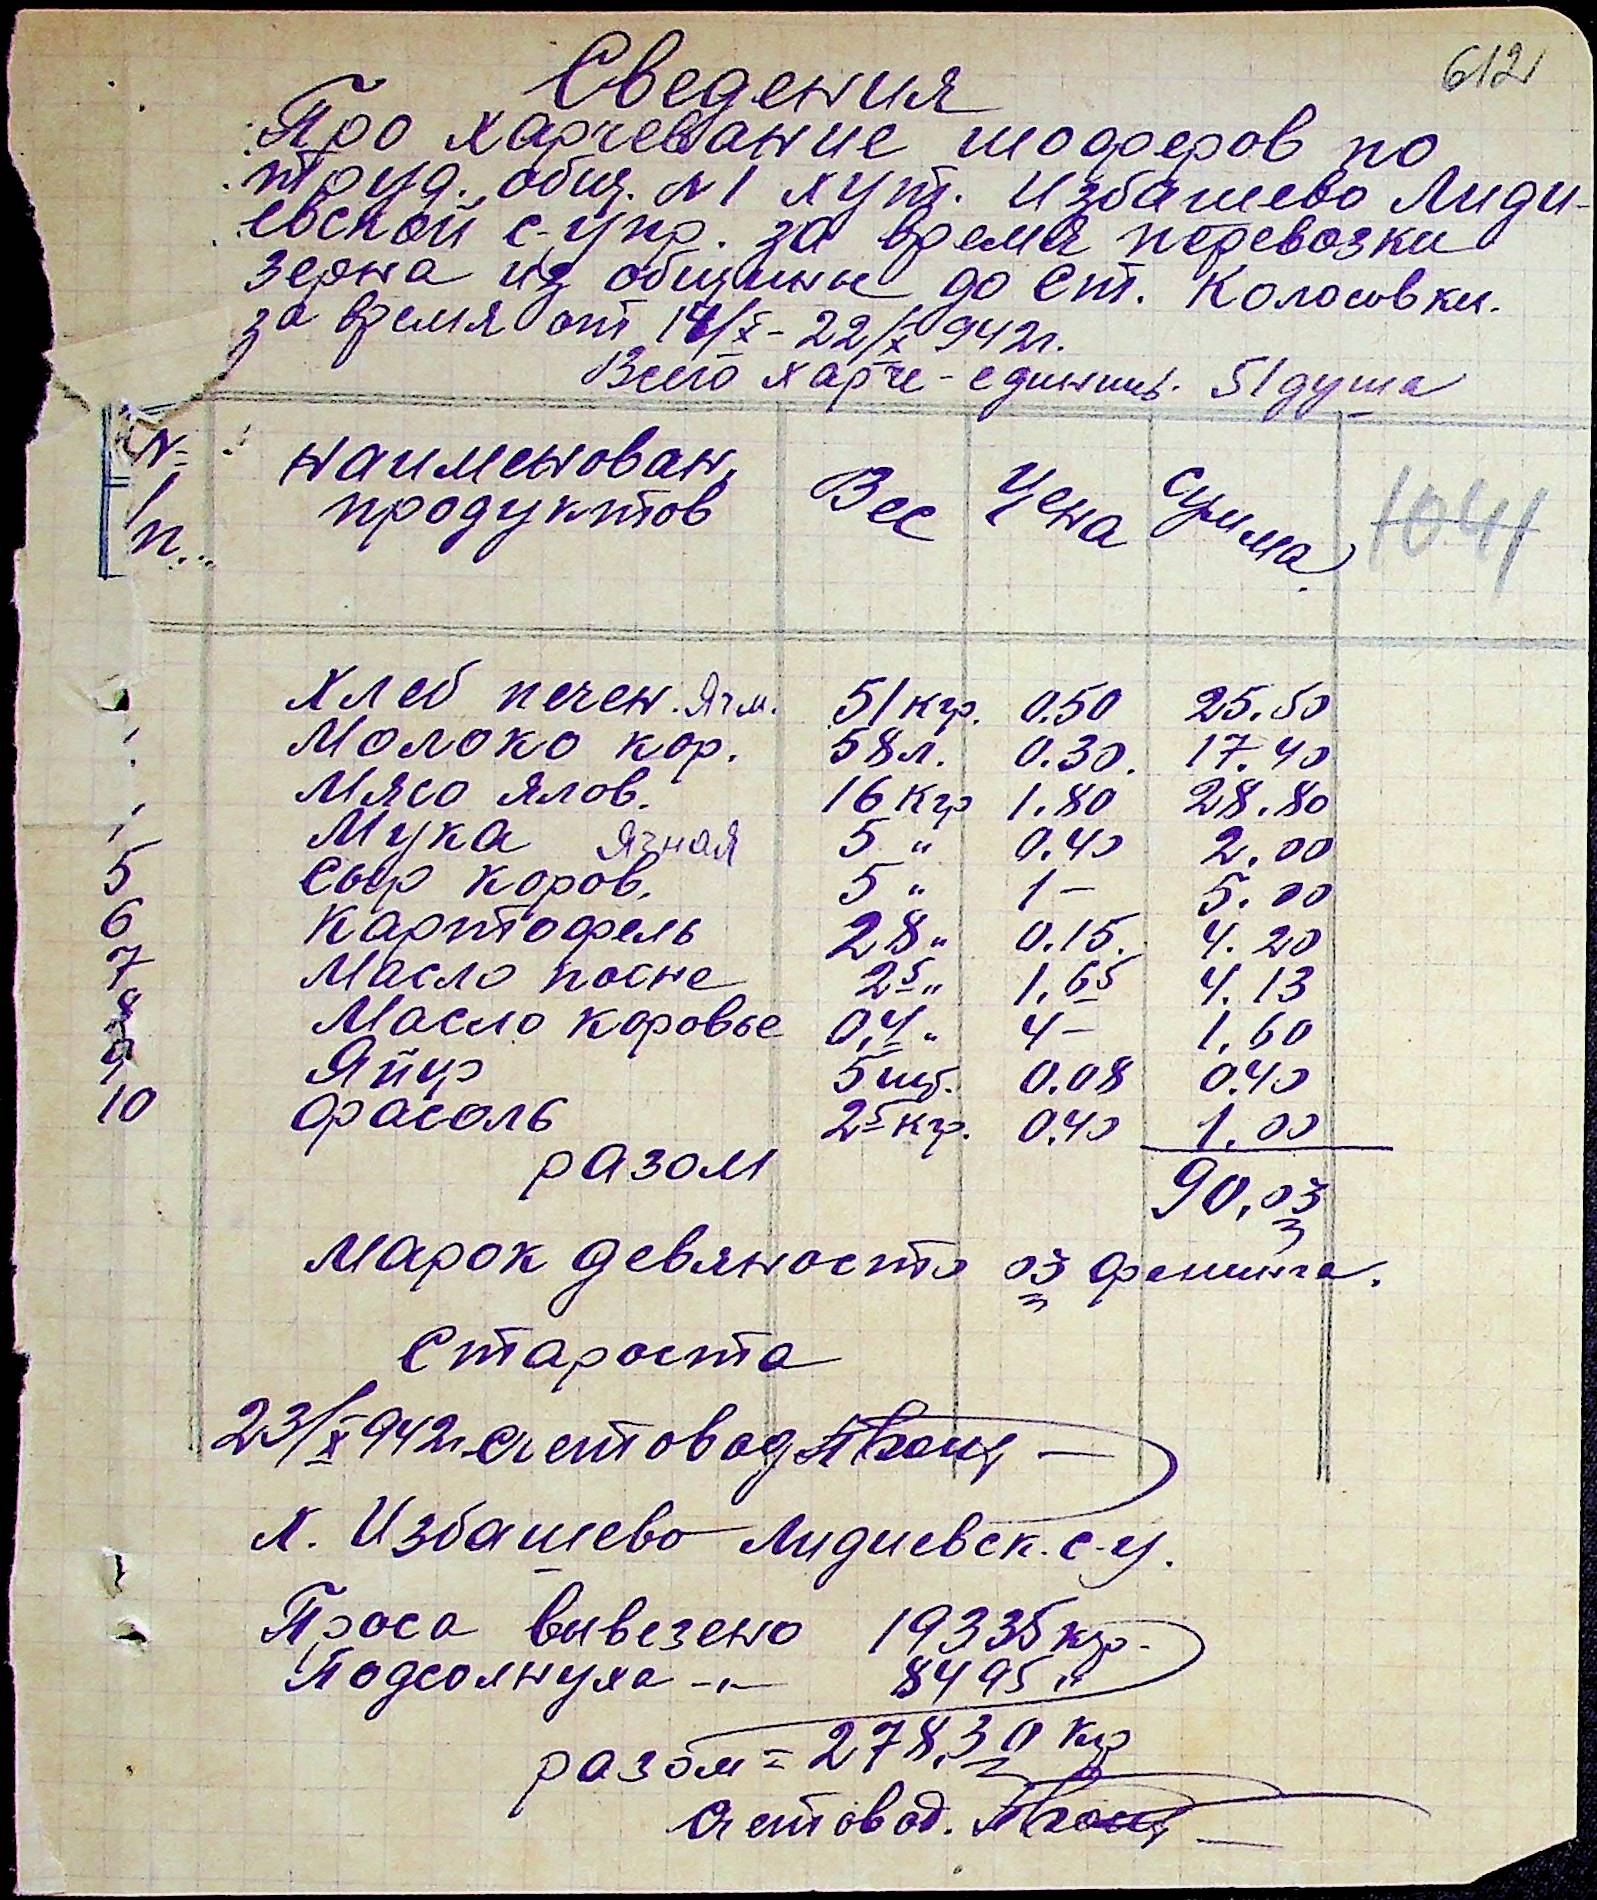 612
Сведения
Про харчевание шоферов по
труд. общ. №1 хут. Избашево Лиди-
евской с-упр. за время перевозки
зерна из общины до ст. Колосовки.
за время от 14/X - 22/X 942г.
Всего харче-единиц. 51 душа
№ п.. наименован. продуктов Вес Цена Сумма. 1041
Хлеб печен. Ячм. 51 кгр. 0.50 25.50
Молоко кор. 58 л. 0.30. 17.40
Мясо ялов. 16 кгр 1.80 28.80
Мука Ячная 5 " 0.40 2.00
5 Сыр коров. 5 " 1 – 5.00
6 Картофель 28 " 0.15. 4.20
7 Масло посне 2 5 " 1.65 4.13
8 Масло коровье 0,4 " 4 – 1,60
9 Яйцр 5 шт. 0.08 0.40
10 фасоль 2 5 кгр. 0.40 1.00
разом 90,03
Марок девяносто 03 фенинга.
Староста
23/X 942г. счетовод
х. Избашево Лидиевск. с-у.
Проса вывезено 19335 кгр.
Подсолнуха –"– 8495 "
разом = 27830 кгр
счетовод.